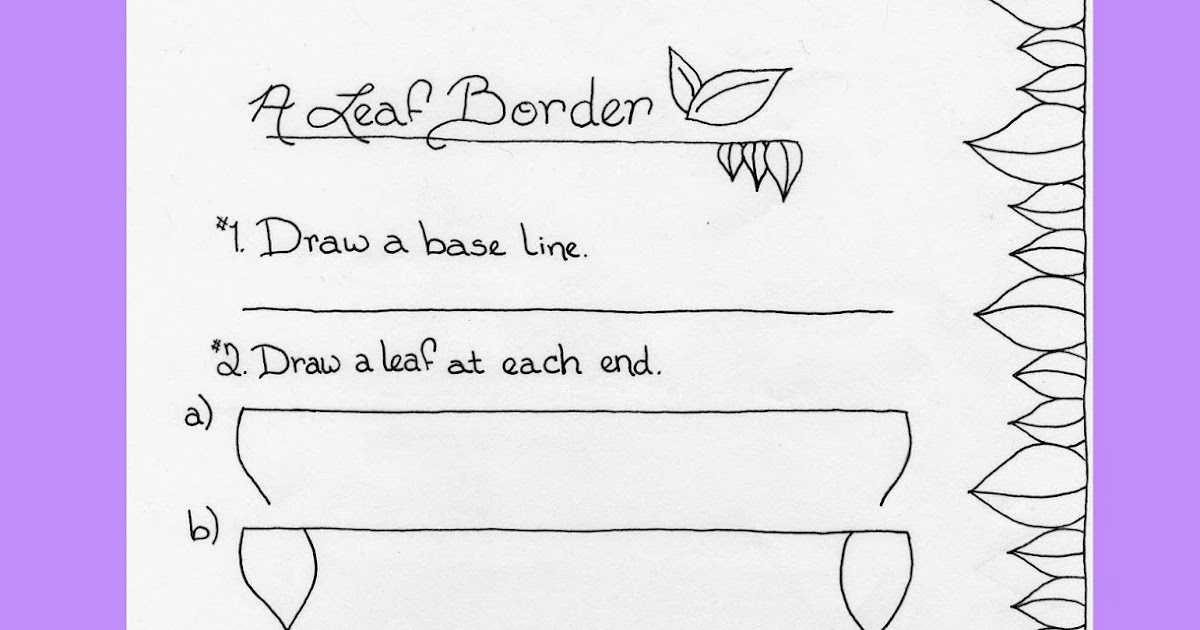 A Leaf Border
#1. Draw a base line.
#2. Draw a leaf at each end.
a)
b)